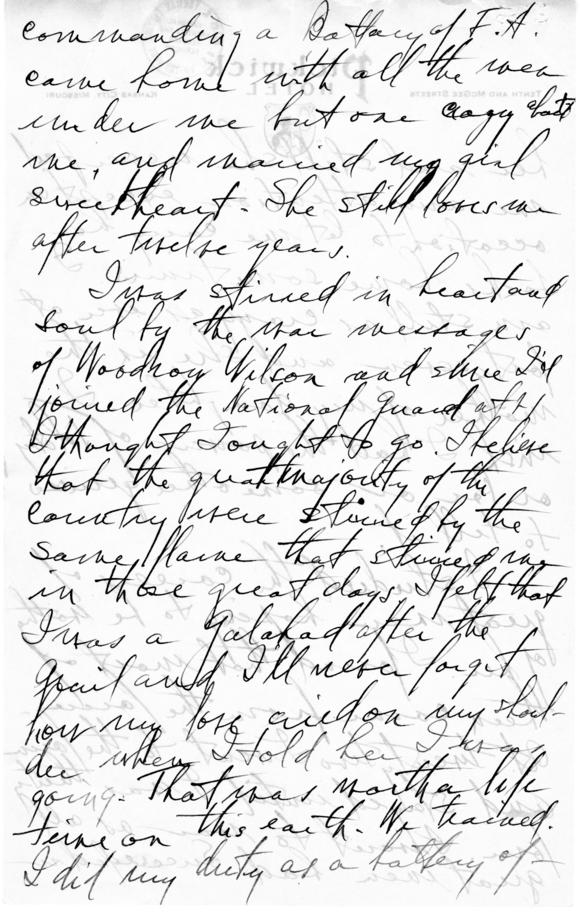 commanding a Battery of F.A.
came home with all the men
under me but one crazy about
me, and married my girl
sweetheart. She still loves me
after twelve years.
I was stirred in heart and
soul by the war messages
of Woodrow Wilson and since I'd
joined the National Guard at 21
I thought I ought to go. I believe
that the great majority of the
country were stirred by the
same flame that stirred me
in those great days. I felt that
I was a Galahad after the
Grail and I'll never forget
how my love cried on my shoul-
der when I told her I was
going. That was worth a life
time on this earth. We trained.
I did my duty as a battery of-